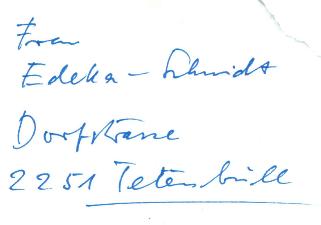 Frau
Edeka - Schmidt
Dorfstrasse
2251 Tetenbüll